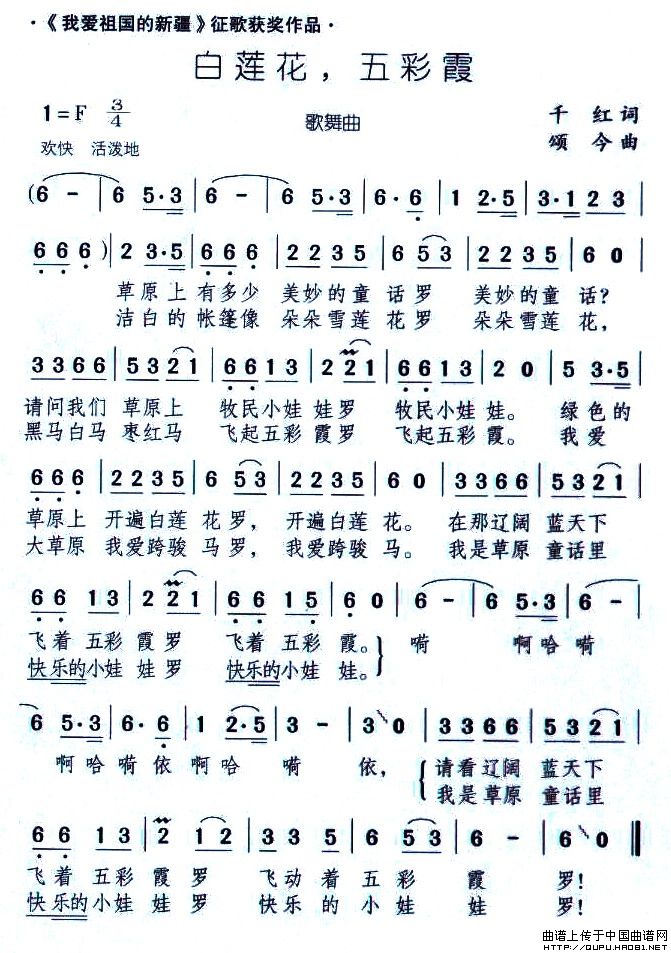 ·《我爱祖国的新疆》征歌获奖作品·
白莲花，五彩霞
1=F 3/4
歌舞曲
千红词
欢快 活泼地
颂今曲
(6 - | 6 5·3 | 6 - | 6 5·3 | 6·6 | 1 2·5 | 3·1 2 3 |
6 6 6 ) | 2 3·5 | 6 6 6 | 2 2 3 5 | 6 5 3 | 2 2 3 5 | 6 0 |
草原上 有多少 美妙的童 话罗 美妙的童 话?
洁白的 帐篷像 朵朵雪莲 花罗 朵朵雪莲 花,
3 3 6 6 | 5 3 2 1 | 6 6 1 3 | 2 2 1 | 6 6 1 3 | 2 0 | 5 3·5 |
请问我们 草原上 牧民小娃 娃罗 牧民小娃 娃。 绿色的
黑马白马 枣红马 飞起五彩 霞罗 飞起五彩 霞。 我爱
6 6 6 | 2 2 3 5 | 6 5 3 | 2 2 3 5 | 6 0 | 3 3 6 6 | 5 3 2 1 |
草原上 开遍白莲 花罗, 开遍白莲 花。 在那辽阔 蓝天下
大草原 我爱跨骏 马罗, 我爱跨骏 马。 我是草原 童话里
6 6 1 3 | 2 2 1 | 6 6 1 5 | 6 0 | 6 - | 6 5·3 | 6 - |
飞着 五彩 霞罗 飞着 五彩 霞。 嗬 啊哈 嗬
快乐的小娃 娃罗 快乐的小娃 娃。
6 5·3 | 6·6 | 1 2·5 | 3 - | 3 0 | 3 3 6 6 | 5 3 2 1 |
啊哈 嗬依 啊哈 嗬 依, 请看辽阔 蓝天下
我是草原 童话里
6 6 1 3 | 2 1 2 | 3 3 5 | 6 5 3 | 6 - | 6 0 ‖
飞着 五彩 霞 罗 飞动着 五彩 霞 罗!
快乐的小娃 娃 罗 快乐的 小娃 娃 罗!
曲谱上传于中国曲谱网
HTTP://QUPU.HAO81.NET